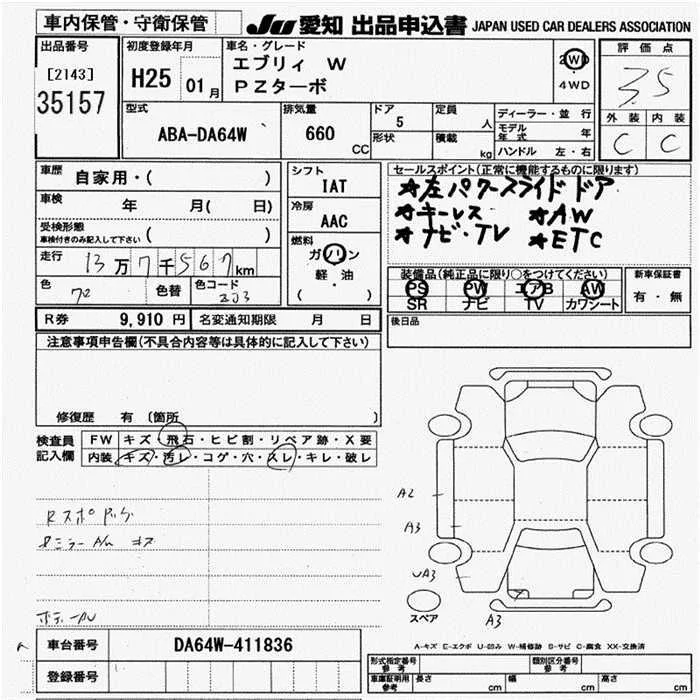 車内保管・守衛保管
JU 愛知 出品申込書 JAPAN USED CAR DEALERS ASSOCIATION
出品番号
[2143]
35157
初度登録年月
H25 01月
車名・グレード
エブリィ W
PZターボ
2WD
・
4WD
評価点
3.5
外装 内装
C C
型式
ABA-DA64W
排気量
660
CC
ドア
5
形状
定員
人
積載
kg
ディーラー・並 行
モデル年式 年
ハンドル 左・右
車歴
自家用・( )
車検
年 月( 日)
受検形態
車検付きのみ記入して下さい ( )
走行
13万7千567km
色 色替 色コード
ZJ3
シフト
IAT
冷房
AAC
燃料
ガソリン
軽・油
( )
セールスポイント(正常に機能するものに限ります)
★左パワースライドドア
★キーレス ★AW
★ナビ・TV ★ETC
装備品(純正品に限り○をつけてください)
PS PW エアB AW
SR ナビ TV カワシート
新車保証書
有・無
後日品
R券 9,910 円 名変通知期限 月 日
注意事項申告欄(不具合内容等は具体的に記入して下さい)
修復歴 有 〔箇所 〕
検査員記入欄
FW キズ・飛石・ヒビ割・リペア跡・X要
内装 キズ・汚レ・コゲ・穴・スレ・キレ・破レ
A2
A3
UA3
A3
スペア
A-キズ E-エクボ U-凹み W-補修跡 S-サビ C-腐食 XX-交換済
車台番号 DA64W-411836
登録番号
形式指定番号
参考
類別区分番号
参考
車庫証明用
参考
長さ cm 幅 cm 高さ cm